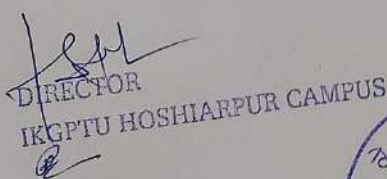 DIRECTOR
IKGPTU HOSHIARPUR CAMPUS